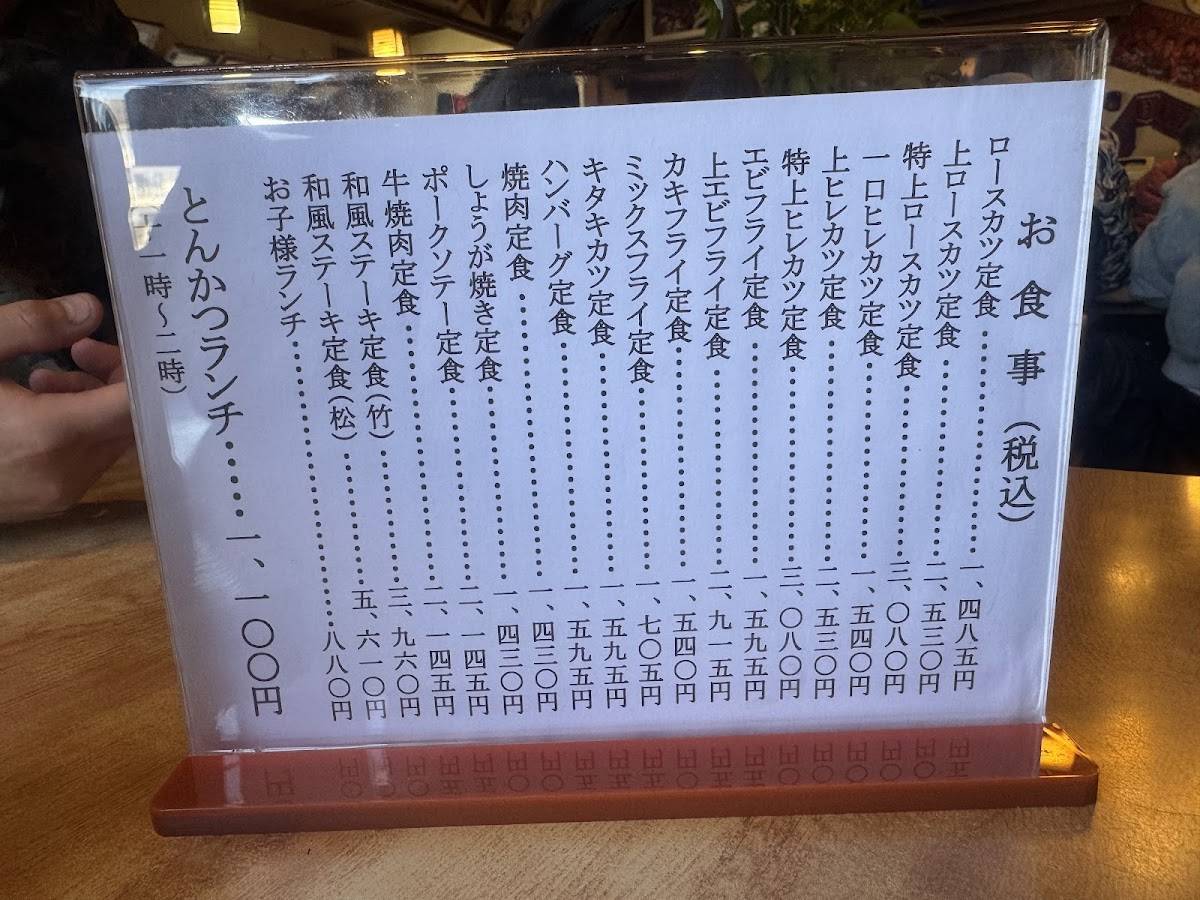 お食事（税込）
ロースカツ定食……………一、四八五円
上ロースカツ定食……………二、五三〇円
特上ロースカツ定食……………三、〇八〇円
一口ヒレカツ定食……………一、五四〇円
上ヒレカツ定食……………二、五三〇円
特上ヒレカツ定食……………三、〇八〇円
エビフライ定食……………一、五九五円
上エビフライ定食……………二、九一五円
カキフライ定食……………一、五四〇円
ミックスフライ定食……………一、七〇五円
キタキカツ定食……………一、五九五円
ハンバーグ定食……………一、五九五円
焼肉定食……………一、四三〇円
しょうが焼き定食……………一、四三〇円
ポークソテー定食……………二、一四五円
牛焼肉定食……………二、一四五円
和風ステーキ定食（竹）……………三、九六〇円
和風ステーキ定食（松）……………五、六一〇円
お子様ランチ……………八八〇円
とんかつランチ……一、一〇〇円
（十一時～二時）